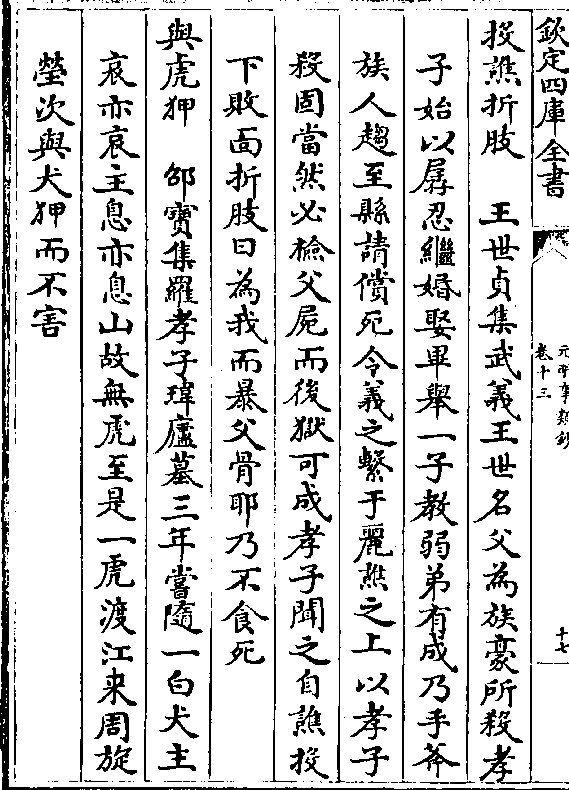 欽定四庫全書
元明事類鈔
卷十三
十七
投譙折肢　王世貞集武義王世名父為族豪所殺孝
子始以孱忍繼婚娶畢舉一子教弱弟有成乃手斧
族人趨至縣請償死令義之繫于麗譙之上以孝子
殺固當然必檢父屍而後獄可成孝子聞之自譙投
下敗面折肢曰為我而暴父骨耶乃不食死
與虎狎　邵寶集羅孝子瑋廬墓三年嘗隨一白犬主
哀亦哀主息亦息山故無虎至是一虎渡江来周旋
塋次與犬狎而不害